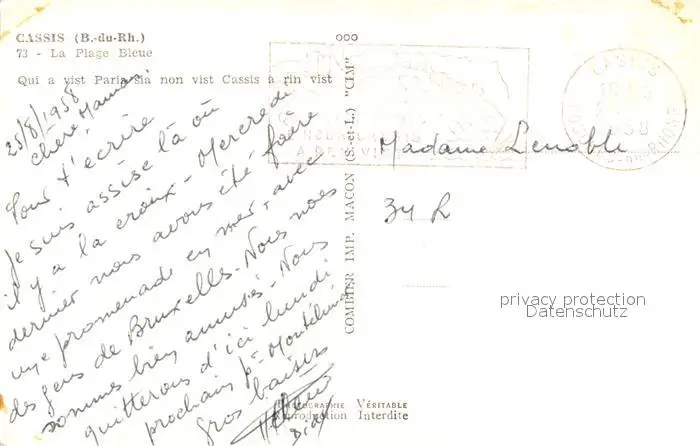 CASSIS (B.-du-Rh.)
73 - La Plage Bleue
Qui a vist Paris sia non vist Cassis a rin vist
25/8/1958
Chère Maman
Pour t'écrire
je suis assise là où
il y a la croix - Mercredi
dernier nous avons été faire
une promenade en mer, avec
des gens de Bruxelles. Nous nous
sommes bien amusés. Nous
quitterons d'ici lundi
prochain pr Montélimar
gros baisers
ooo
COMBIER IMP. MACON (S.-et-L.) "CIM"
CASSIS
1958
BOUCHES-DU-RHONE
Madame Lenoble
34 R
privacy protection
Datenschutz
PHOTOGRAPHIE VÉRITABLE
Reproduction Interdite